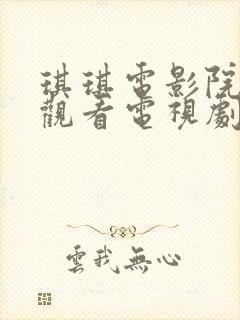 琪琪電影院
觀看電視劇
雲我無心